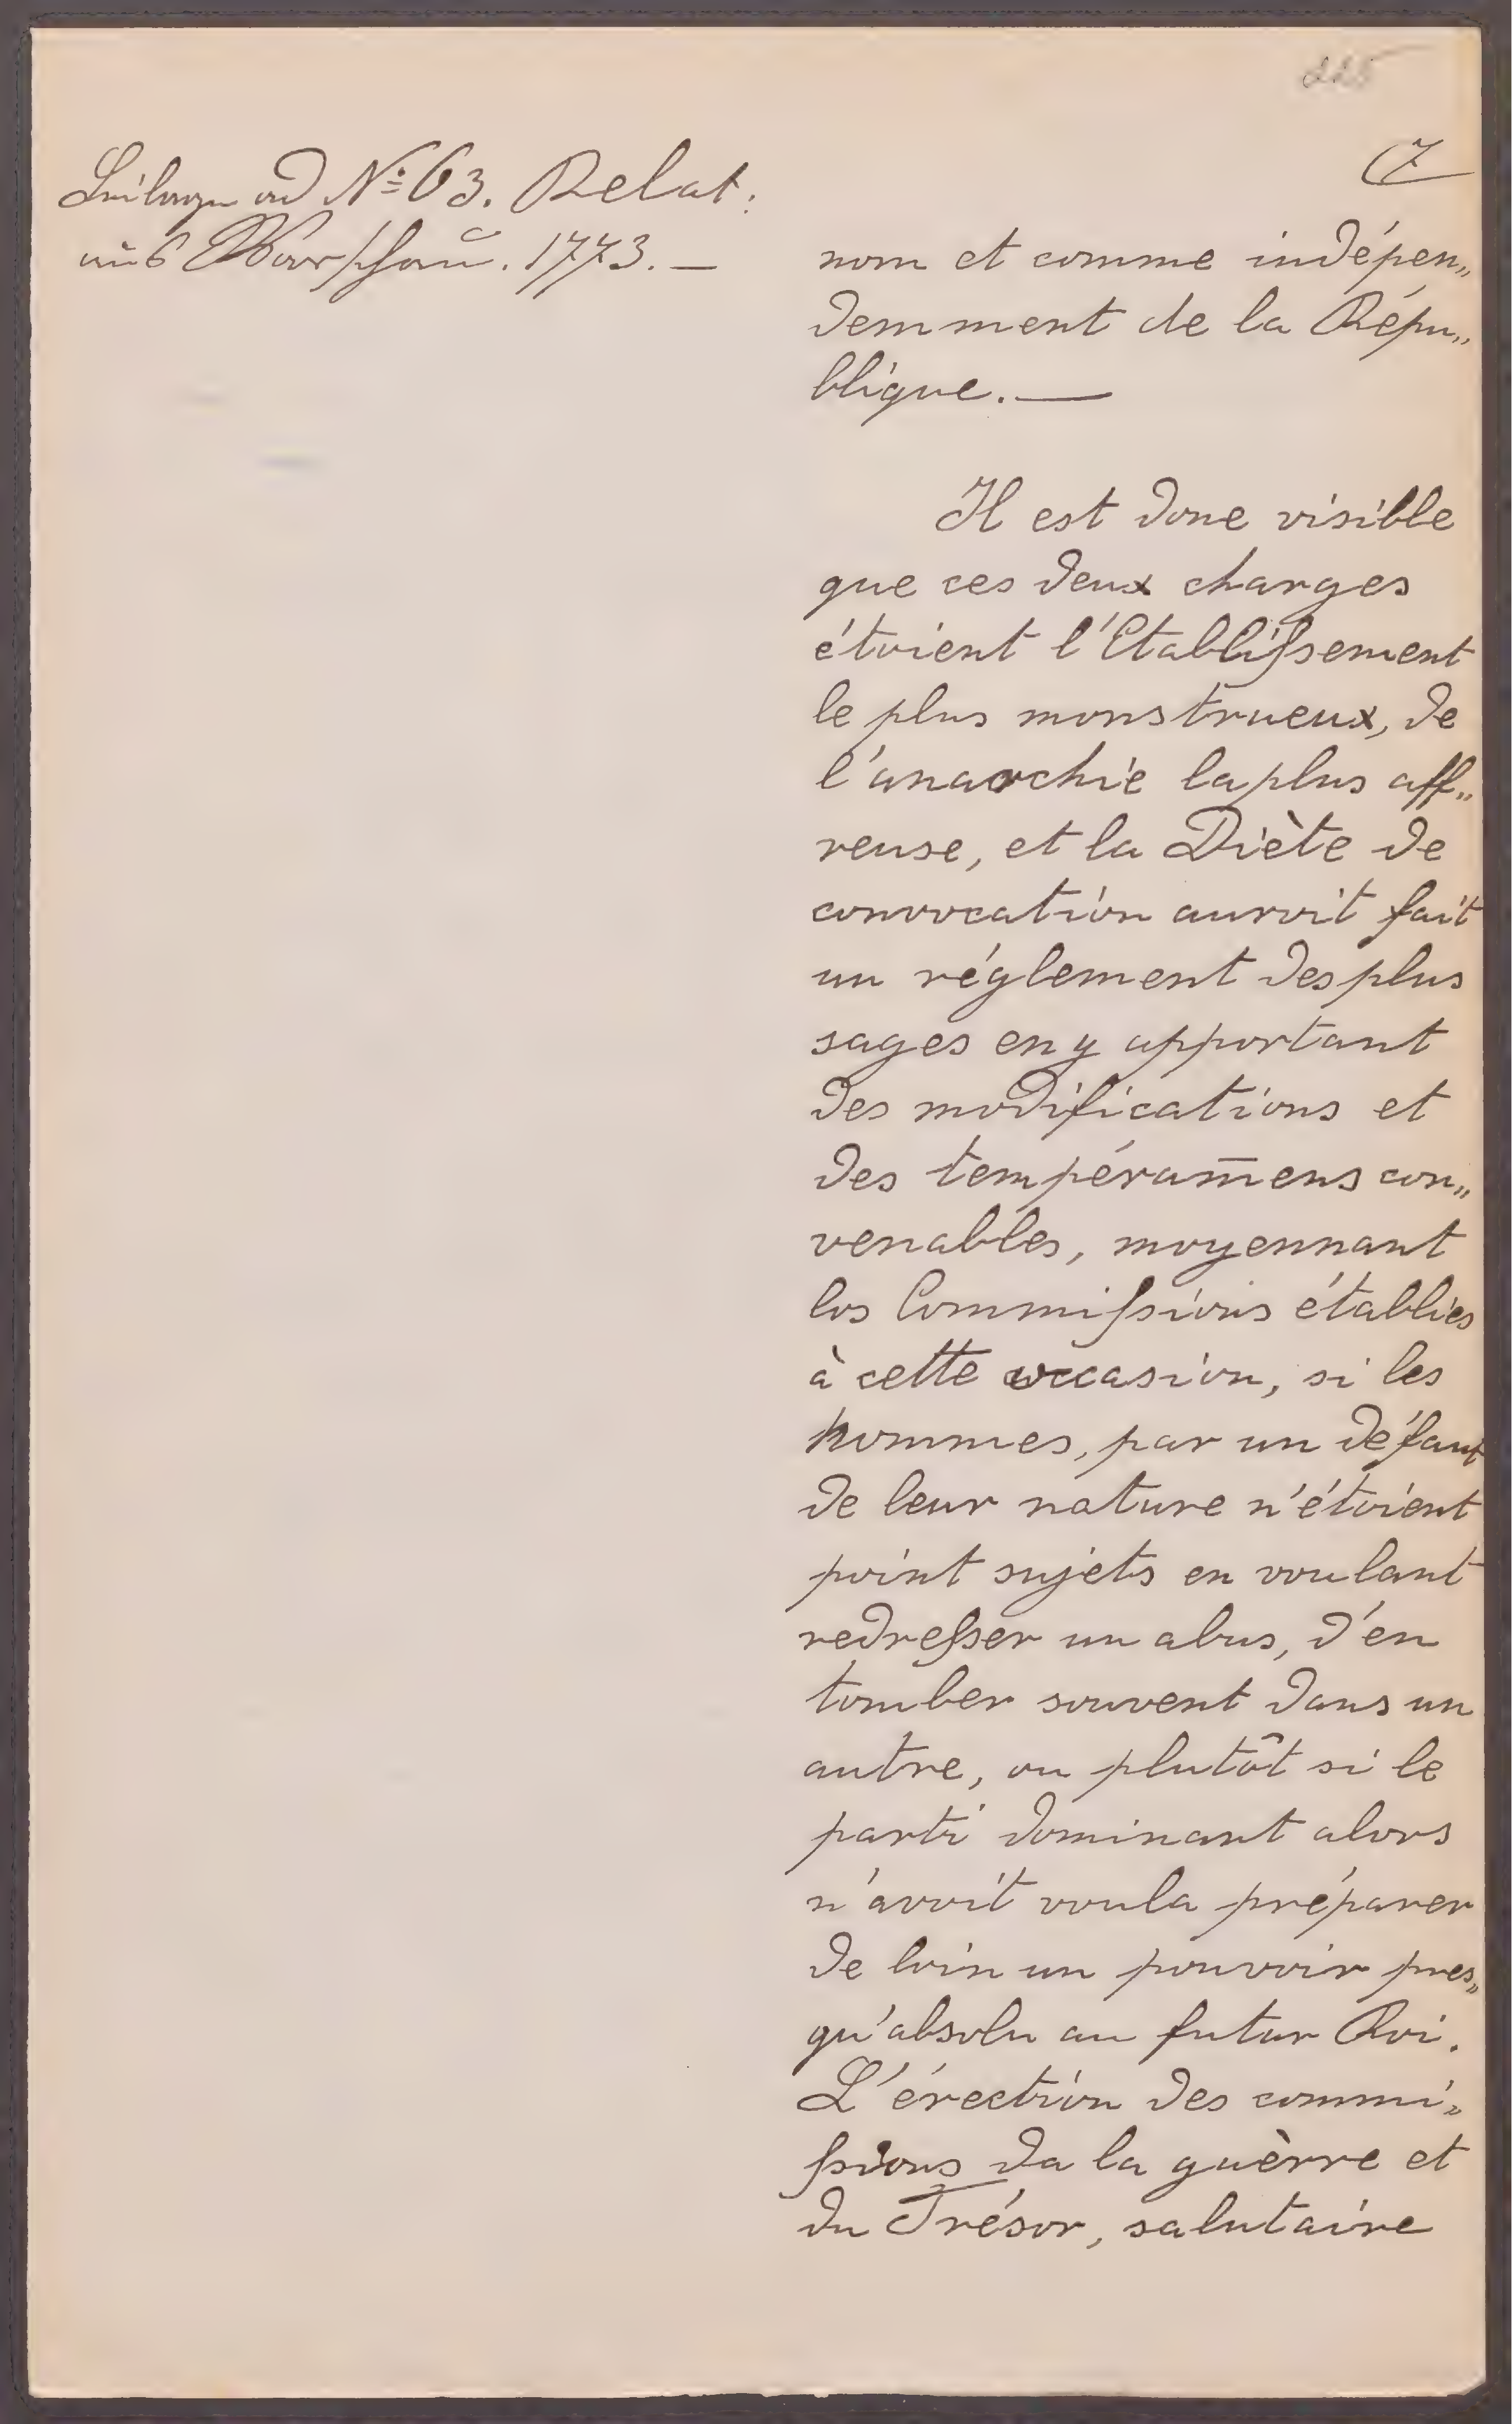 225
7
Beilage ad Nº 63. Relat:
aus Warschau. 1773. —
nom et comme indépen„
demment de la Répu„
blique. —
Il est donc visible
que ces deux charges
étoient l'Etablissement
le plus monstrueux, de
l'anarchie la plus aff„
reuse, et la Diète de
convocation auroit fait
un réglement des plus
sages en y apportant
des modifications et
des tempéram̄ens con„
venables, moyennant
les Commissions établies
à cette occasion, si les
hommes, par un défaut
de leur nature n'étoient
point sujets en voulant
redresser un abus, d'en
tomber souvent dans un
autre, ou plutôt si le
parti dominant alors
n'avoit voulu préparer
de loin un pouvoir pres„
qu'absolu au futur Roi.
L'érection des commi„
ssions da la guèrre et
du Trésor, salutaire